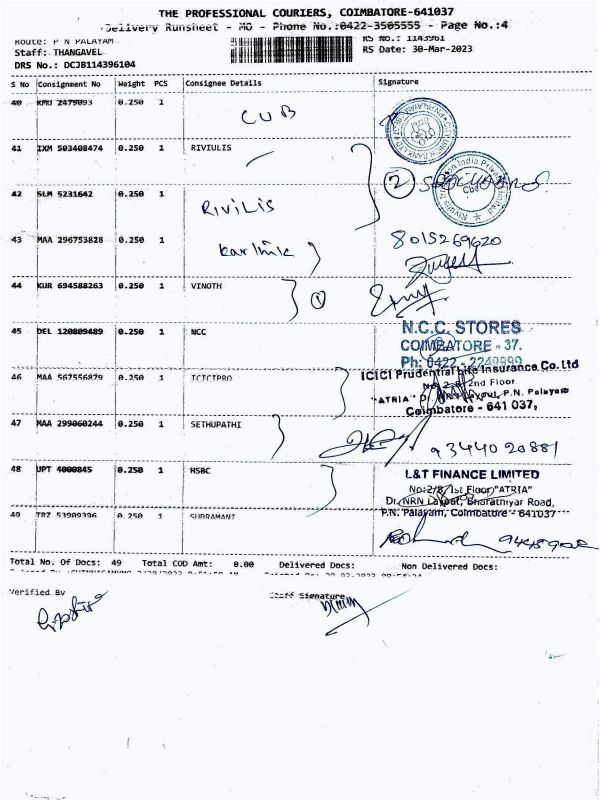 THE PROFESSIONAL COURIERS, COIMBATORE-641037
Delivery Runsheet - MO - Phone No.:0422-3505555 - Page No.:4
Route: P N PALAYAM
RS No.: 1143961
Staff: THANGAVEL
RS Date: 30-Mar-2023
DRS No.: DCJB114396104
S No Consignment No Weight PCS Consignee Details Signature
40 KMU 2479093 0.250 1 CUB
41 IXM 503408474 0.250 1 RIVIULIS
42 SLM 5231642 0.250 1 RIVILIS
2
43 MAA 296753828 0.250 1 karthik
8015269620
44 KUR 694588263 0.250 1 VINOTH
1
45 DEL 120809489 0.250 1 NCC
N.C.C. STORES
COIMBATORE - 37.
Ph: 0422 - 2249999
46 MAA 567556879 0.250 1 ICICIPRO
ICICI Prudential Life Insurance Co.Ltd
2nd Floor
"ATRIA" Dr. NRN Layout, P.N. Palayam
Coimbatore - 641 037,
47 MAA 299060244 0.250 1 SETHUPATHI
9344020881
48 UPT 4000845 0.250 1 HSBC
L&T FINANCE LIMITED
No:2/8, 1st Floor, "ATRIA"
Dr. NRN Layout, Bharathiyar Road,
P.N. Palayam, Coimbatore - 641037
49 TRZ 53909396 0.250 1 SUBRAMANI
Total No. Of Docs: 49 Total COD Amt: 0.00 Delivered Docs: Non Delivered Docs:
Verified By
Staff Signature